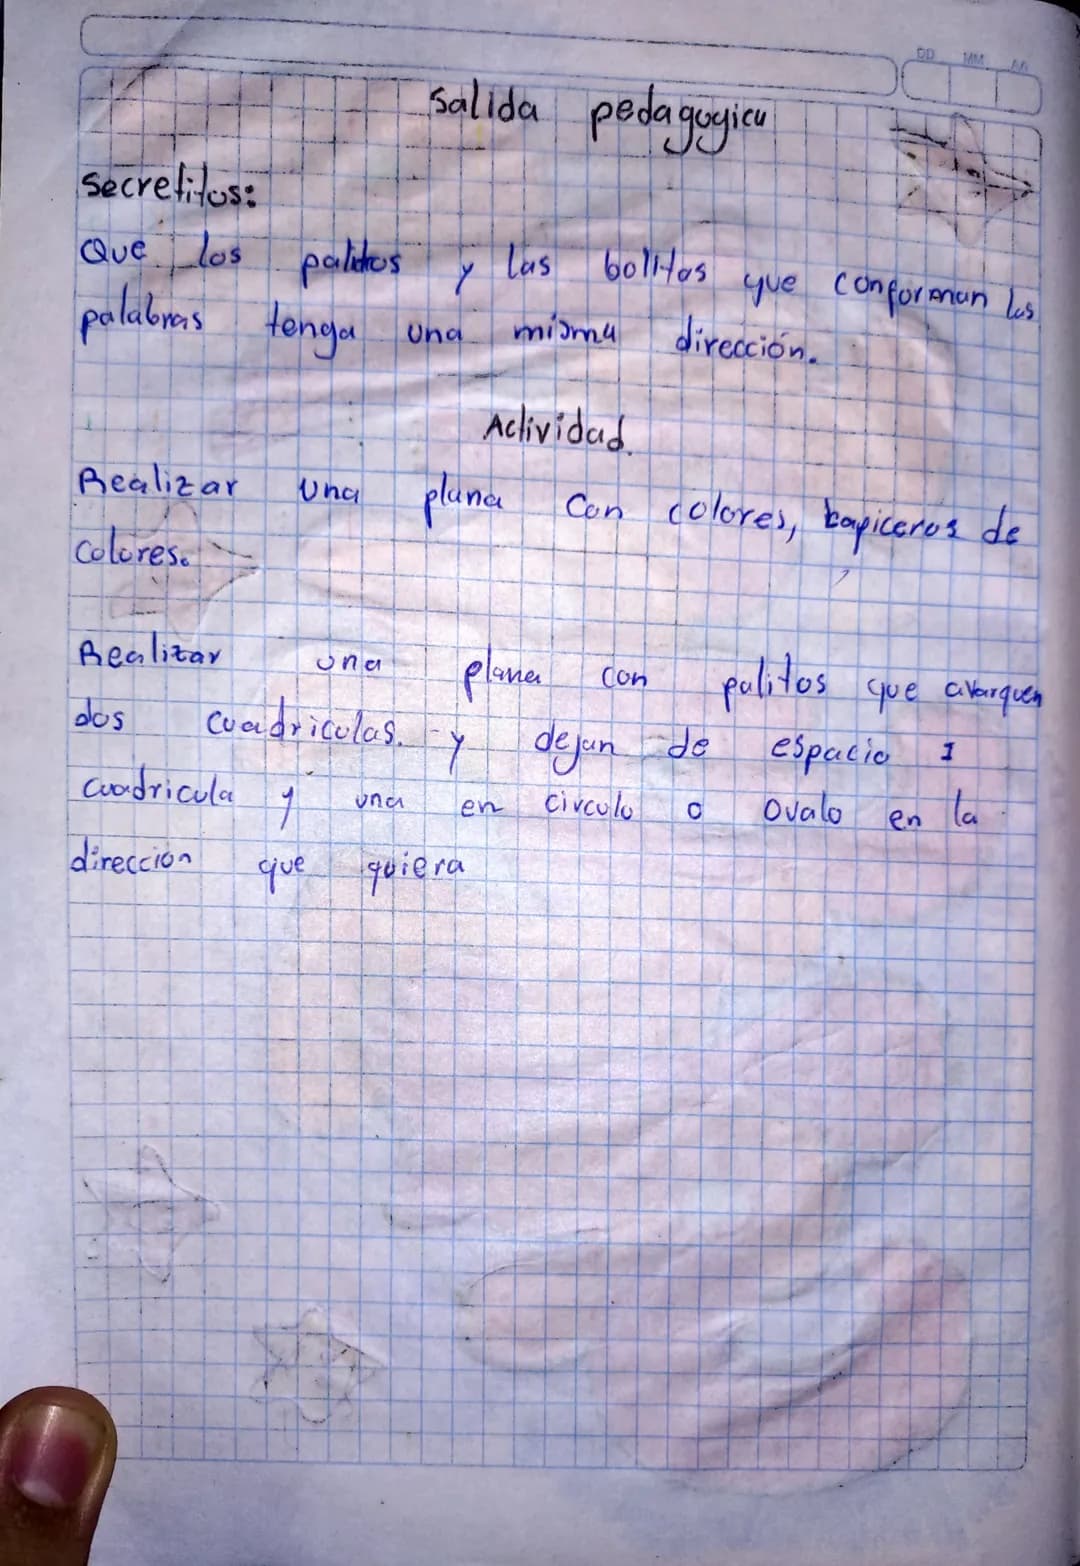 DD MM AA
Salida pedagogica
Secretitos:
Que los palitos y las bolitas que conforman las
palabras tenga una misma dirección.
Actividad.
Realizar una plana con colores, bapiceros de
colores.
Realizar una plana con palitos que avarquen
dos cuadriculas. y dejan de espacio 1
cuadricula y una en circulo o ovalo en la
direccion que quiera